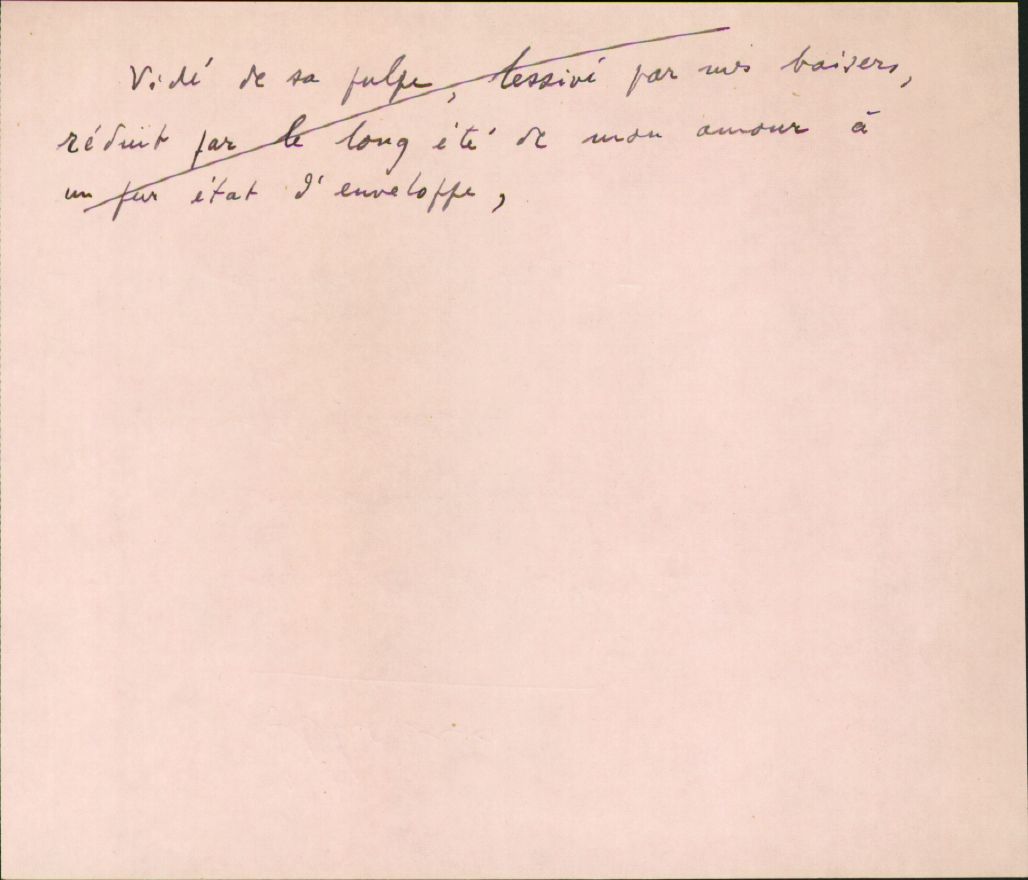 Vidé de sa pulpe, lessivé par mes baisers,
réduit par le long été de mon amour à
un pur état d'enveloppe,